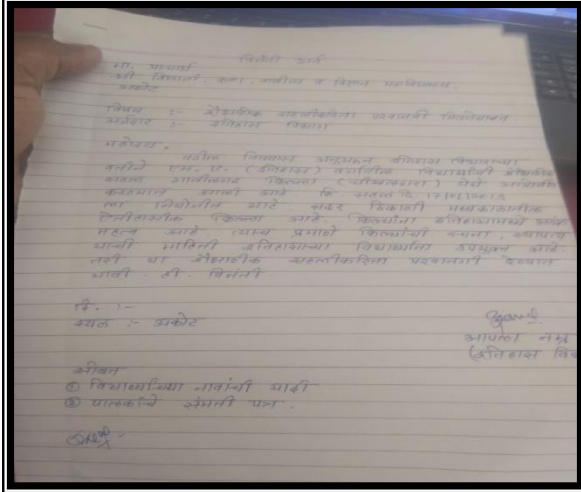 विनंती अर्ज
मा. प्राचार्य
श्री शिवाजी कला, वाणिज्य व विज्ञान महाविद्यालय,
अकोट
विषय :- शैक्षणिक सहलीकरिता परवानगी मिळणेबाबत
अर्जदार :- इतिहास विभाग
महोदय,
वरील विषयास अनुसरून इतिहास विभागाच्या
वतीने एम. ए. (इतिहास) वर्गातील विद्यार्थ्यांची शैक्षणिक
सहल गाविलगड किल्ला (चिखलदरा) येथे आयोजित
करण्यात आली आहे. सहल दि.
ला नियोजीत आहे. सदर ठिकाणी मध्यकालीन
ऐतिहासीक किल्ला आहे. किल्यांना इतिहासामध्ये
महत्व आहे. त्याच प्रमाणे किल्यांची रचना, स्थापत्य
याची माहिती इतिहासाच्या विद्यार्थ्यांना उपयुक्त आहे.
तरी या शैक्षणीक सहलीकरिता परवानगी देण्यात
यावी. ही. विनंती
दि. :-
स्थळ :- अकोट
आपला नम्र
(इतिहास
सोबत
① विद्यार्थ्यांच्या नावांची यादी
② पालकांचे संमती पत्र.